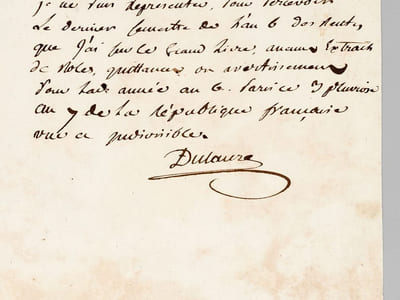 je ne puis représenter, pour recevoir
Le dernier semestre de l'an 6 des Rentes
que j'ai sur le Grand Livre, aucuns Extraits
de Roles, quittances ou avertissemens
Pour Ladi année an 6. Paris ce 3 pluviose
an 7 de La République française
une et indivisible.
Dulaure